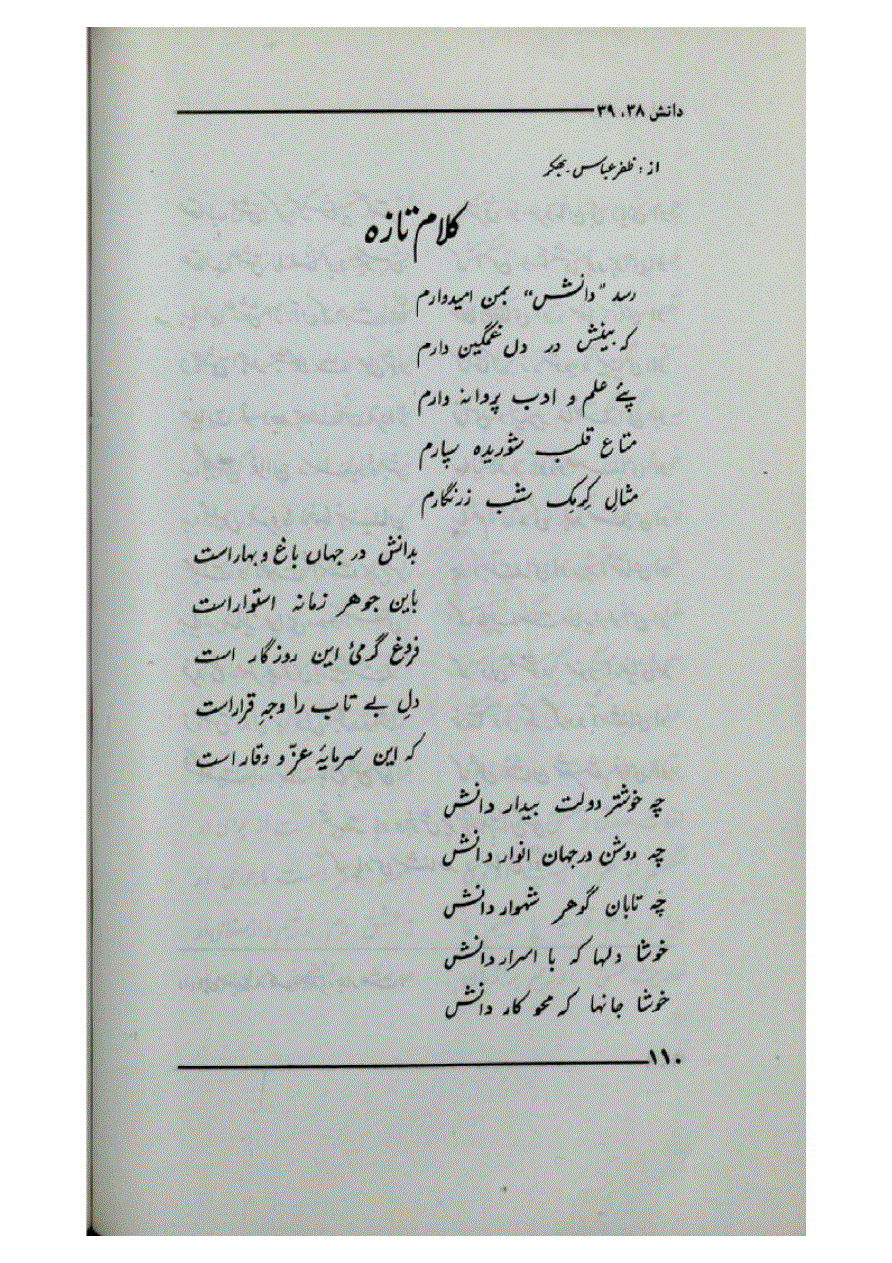 دانش ۳۸، ۳۹
از : ظفر عباس۔ بھکر
کلام تازہ
رسد "دانش" بمن امیدوارم
کہ بینش در دل غمگین دارم
پئے علم و ادب پروانہ وارم
متاع قلب شوریدہ سپارم
مثالِ کِرمِک شب زرنگارم
بدانش در جہاں باغ و بہار است
باین جوھر زمانہ استوار است
فروغ گرمئ این روزگار است
دلِ بے تاب را وجہِ قرار است
کہ این سرمایۂ عزّ و وقار است
چہ خوشتر دولت بیدار دانش
چہ روشن درجہان انوار دانش
چہ تابان گوھر شہوار دانش
خوشا دلہا کہ با اسرار دانش
خوشا جانہا کہ محو کار دانش
۱۱۰